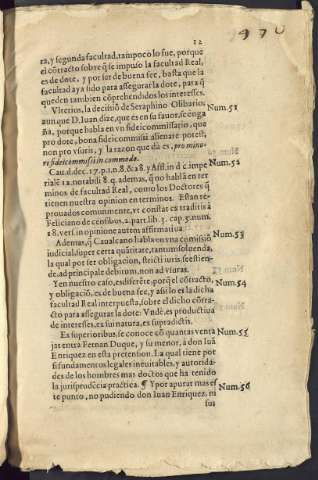 12
970
ra, y segunda facultad, tampoco lo fue, porque
el cõtracto sobre q̃ se impuso la facultad Real,
es de dote, y por ser de buena fee, basta que la
facultad aya sido para assegurar la dote, para q̃
queden tambien cõprehendidos los interesses.
Vlterius, la decisiõ de Seraphino Olibarios Num.51
aunque D. Iuan dize, que es en su fauor, se enga
ña, porque habla en vn fideicommissario, que
pro dote, bona fideicommissi alienare potest,
non pro vsuris, y la razon que dà es, pro mino-
re fideicommissi in commodo.
Cau. d. dec. 17. p. 1. n. 8. & 18. y Afl. in d. c. impe Num.52
rialē 12. notabili 8. q. ademas, q̃ no hablã en ter
minos de facultad Real, como los Doctores q̃
tienen nuestra opinion en terminos. Estan re-
prouados communmente, vt constat ex traditis à
Feliciano de censibus, 2. part. lib. 3. cap. 5. num.
18. vers. in opinione autem affirmatiua.
Ademas, q̃ Caualcano habla en vna comissiõ Num.53
iudicial, super certa quãtitate, tantum soluenda,
la qual por ser obligacion, stricti iuris, se estien-
de, ad principale debitum, non ad vsuras.
Y en nuestro caso, es diferẽte, porq̃ el cõtracto, Num.54
y obligaciõ, es de buena fee, y assi lo es la dicha
facultad Real interpuesta, sobre el dicho contra-
cto para assegurar la dote: Vndè, es productiua
de interesses, ex sui natura, ex supradictis.
Ex superioribus, se conoce cõ quantas venta Num.55
jas entra Fernan Duque, y su menor, à don Iuã
Enriquez en esta pretension. La qual tiene por
si fundamentos legales ineuitables, y autorida-
des de los hombres mas doctos que ha tenido
la jurisprudẽcia practica. ¶ Y por apurar mas es Num.56
te punto, no pudiendo don Iuan Enriquez, ni
sus